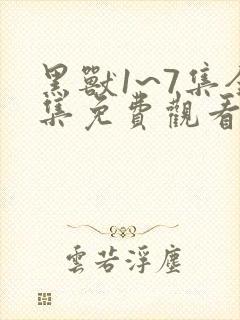 黑獸1~7集全
集免費觀看
雲若浮塵